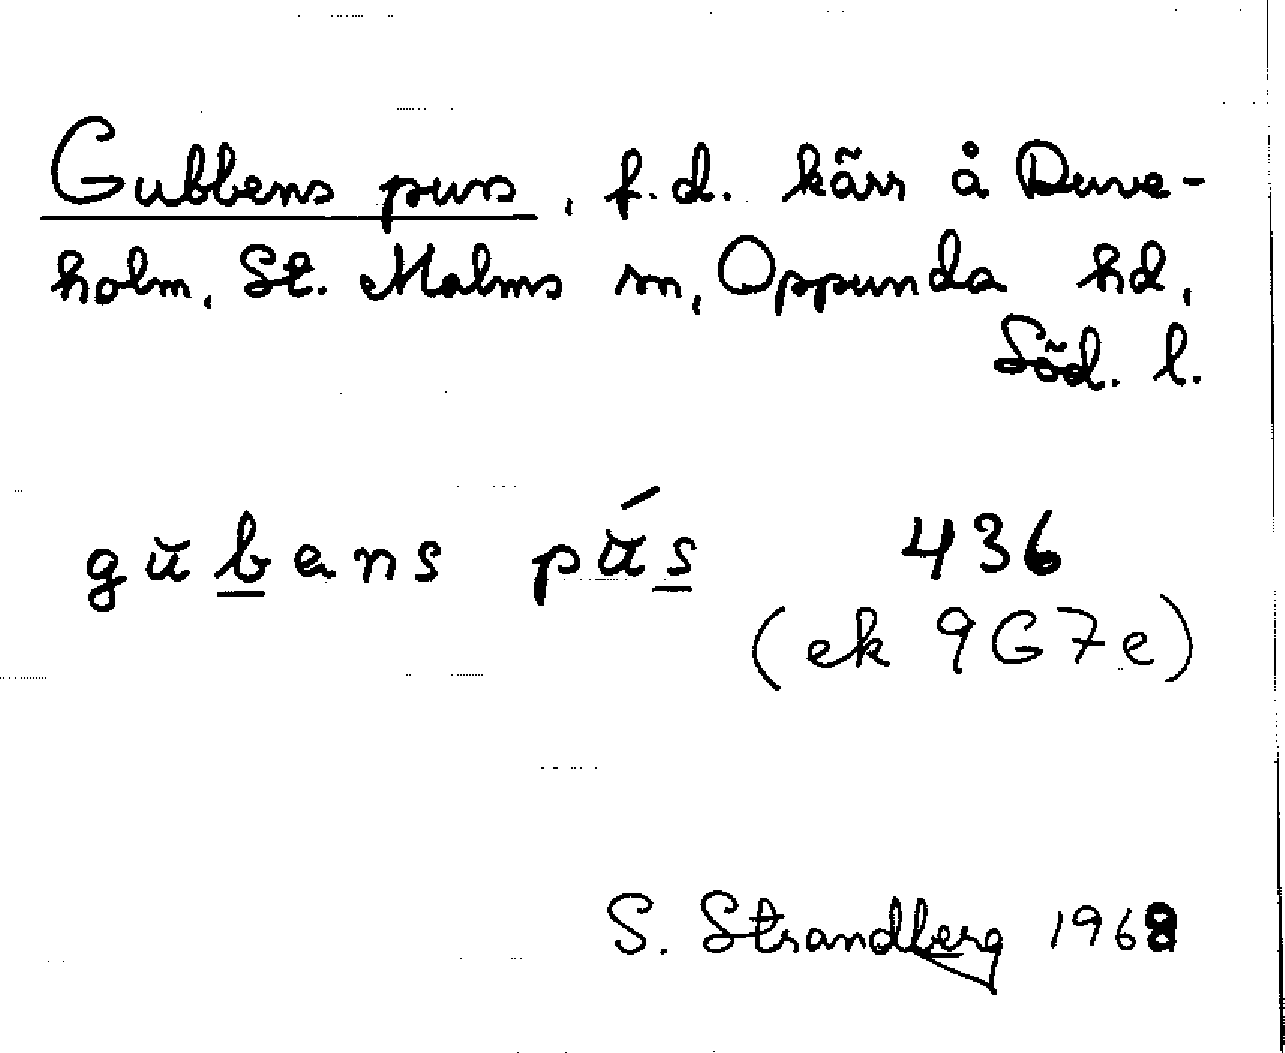 Gubbens purs, f.d. kärr å Duve-
holm, St. Malms sn, Oppunda hd,
Söd. l.
gŭbans pŭ́s 436
(ek 9G7e)
S. Strandberg 1968